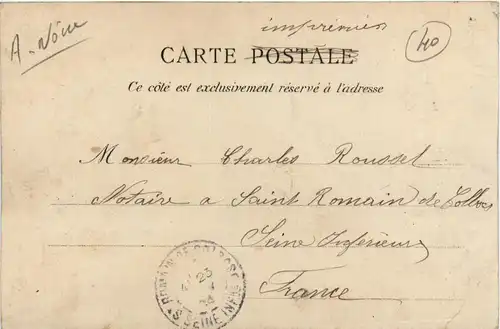 imprimés
A
40
CARTE POSTALE
Ce côté est exclusivement réservé à l'adresse
Monsieur Charles Roussel
Notaire a Saint Romain de Colbosc
Seine Inferieure
France
ROMAIN DE COLBOSC
23
SEINE INFRE